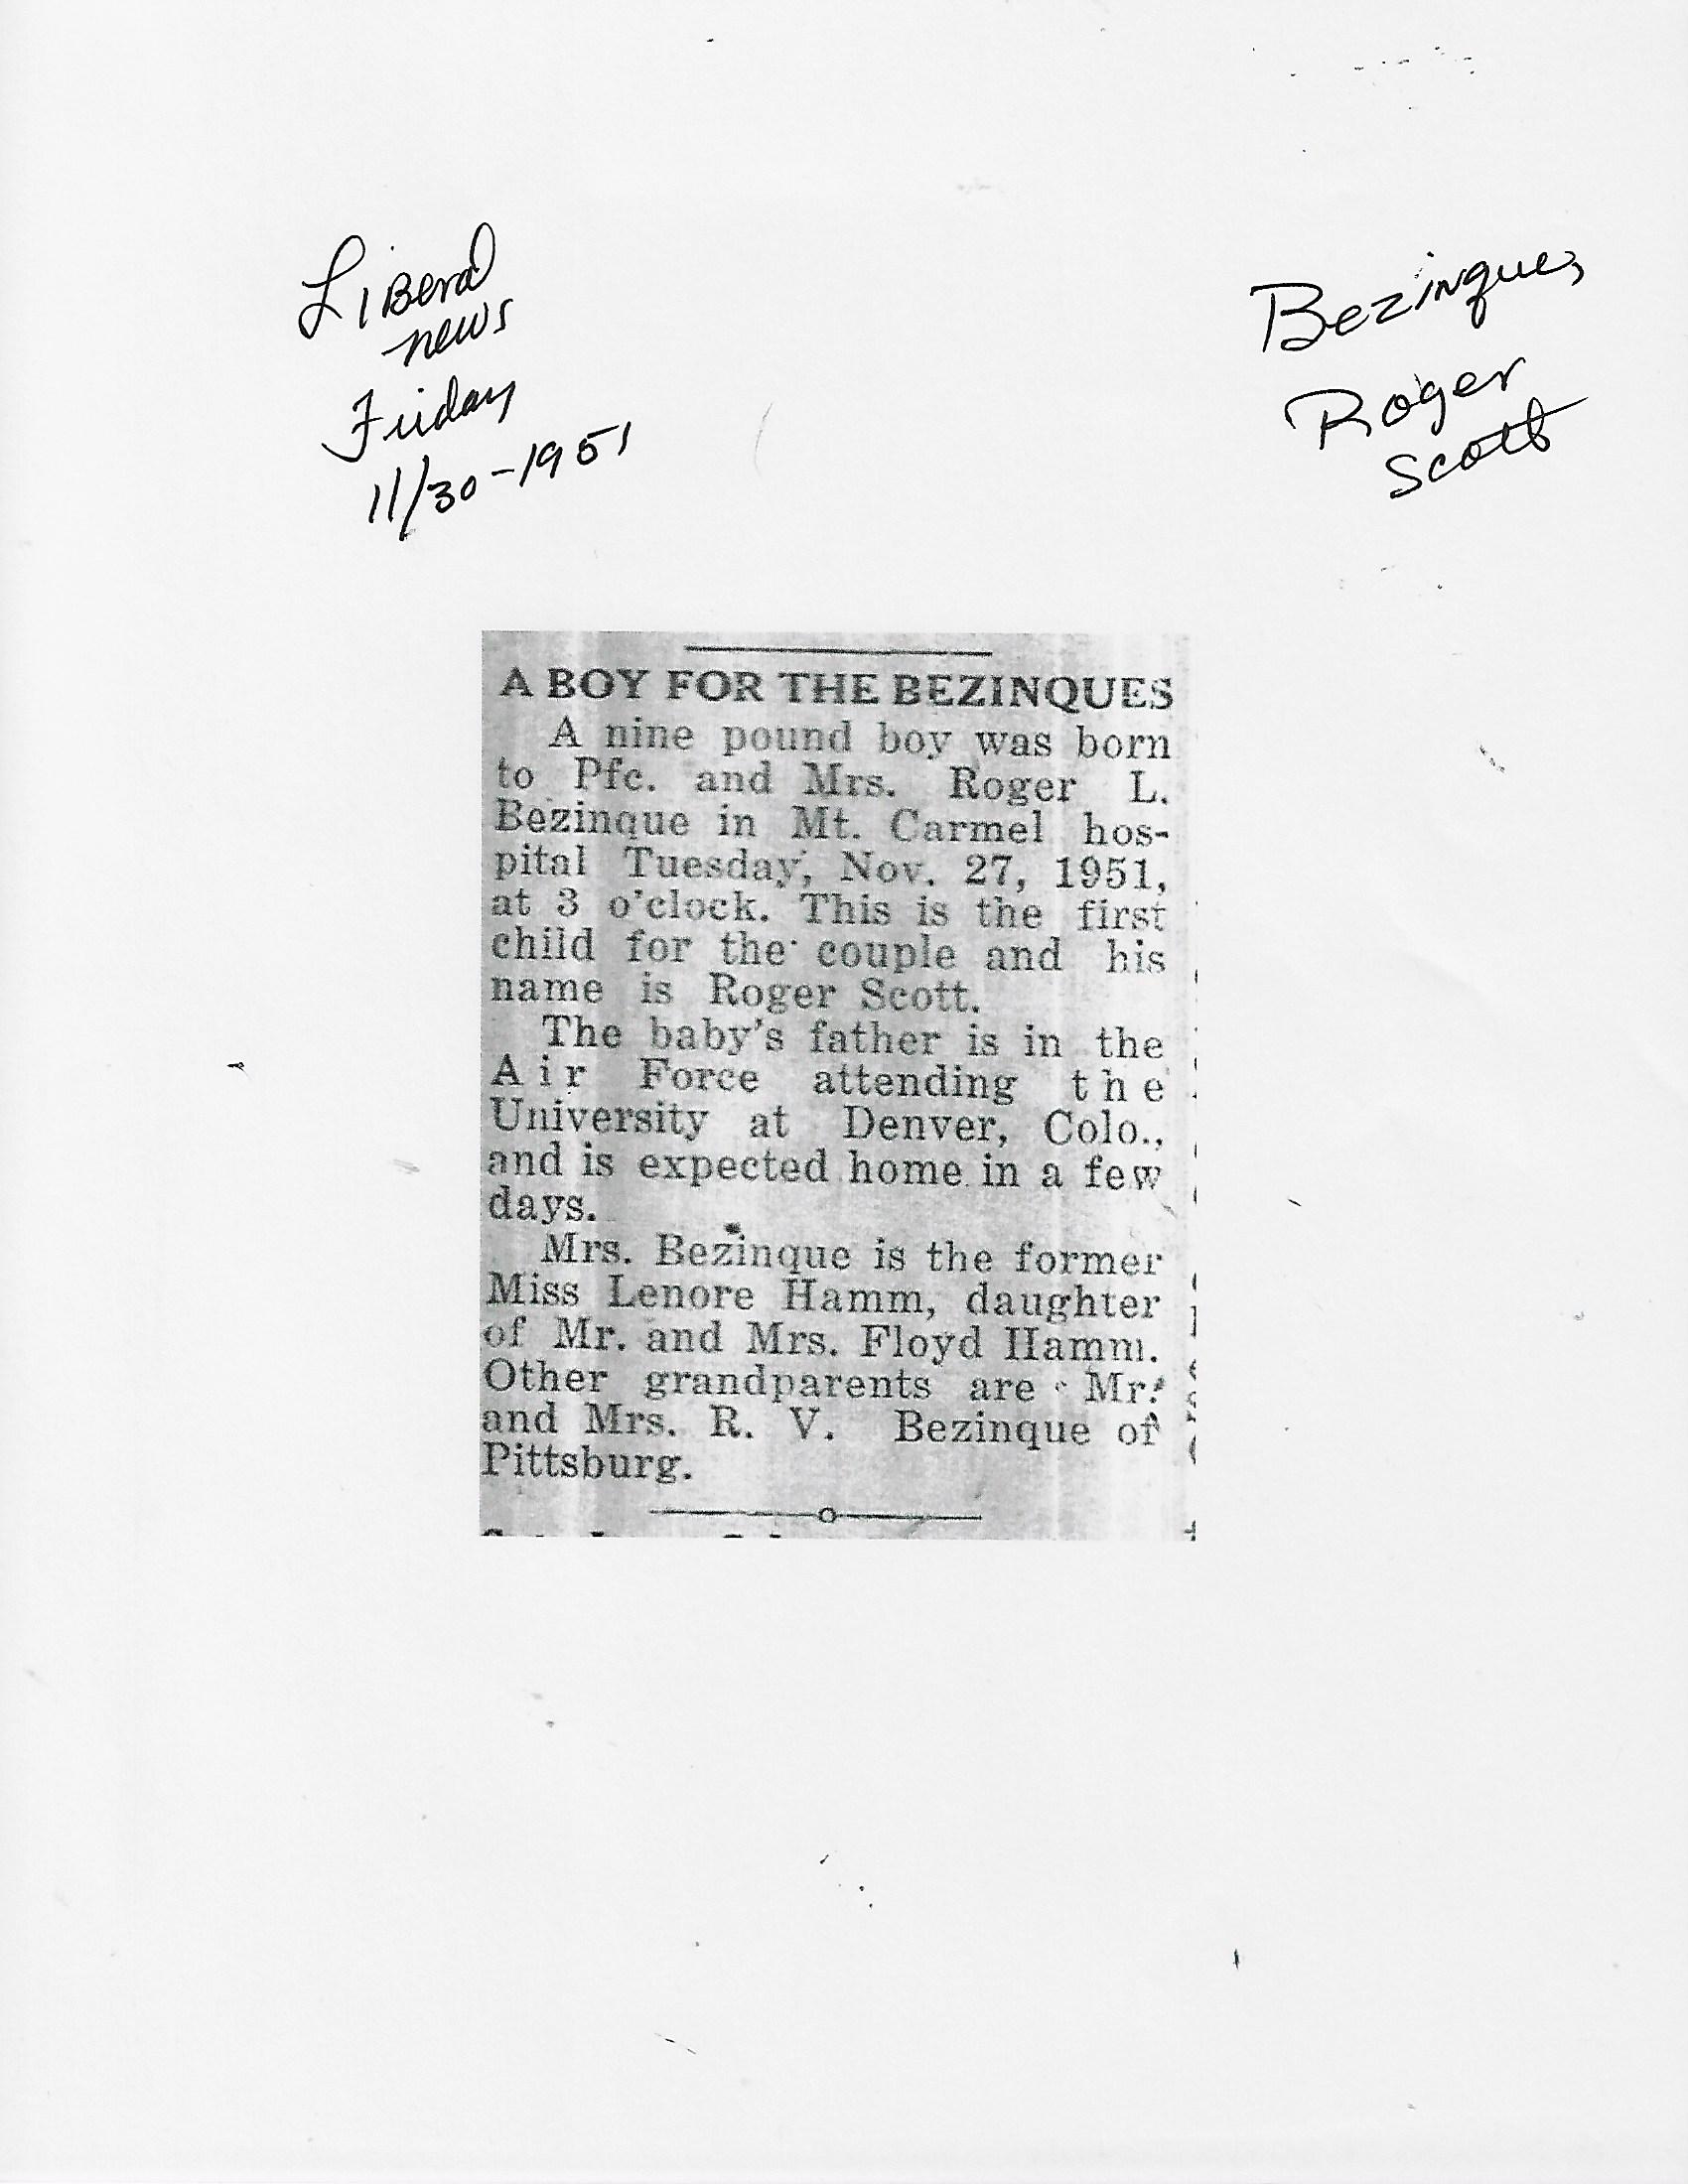 Liberal
news
Friday
11/30-1951
Bezinque,
Roger
Scott
A BOY FOR THE BEZINQUES
A nine pound boy was born
to Pfc. and Mrs. Roger L.
Bezinque in Mt. Carmel hos-
pital Tuesday, Nov. 27, 1951,
at 3 o'clock. This is the first
child for the couple and his
name is Roger Scott.
The baby's father is in the
Air Force attending the
University at Denver, Colo.,
and is expected home in a few
days.
Mrs. Bezinque is the former
Miss Lenore Hamm, daughter
of Mr. and Mrs. Floyd Hamm.
Other grandparents are Mr.
and Mrs. R. V. Bezinque of
Pittsburg.